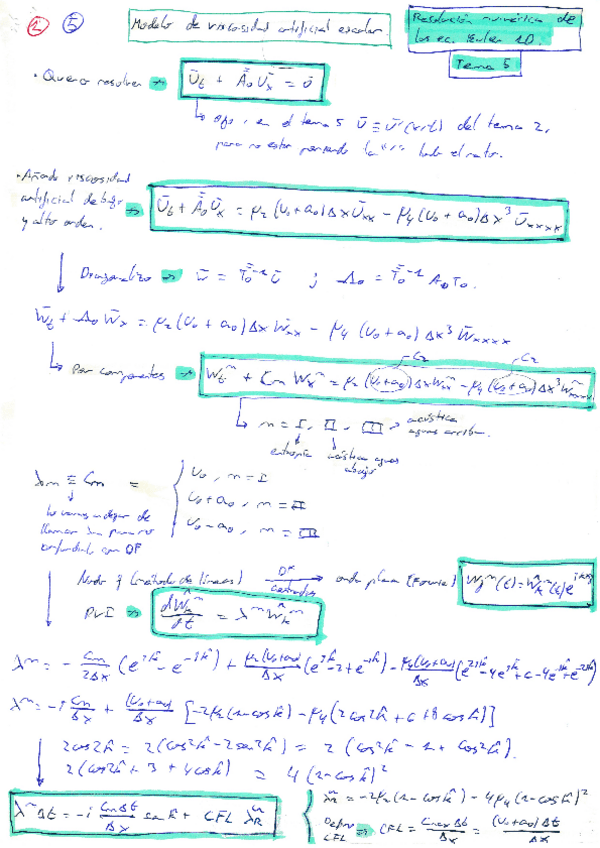 2 5 Modelo de viscosidad artificial escalar. Resolución numérica de las ec. Euler 1D.
Tema 5
· Quiero resolver → Ū_t + Ā₀Ū_x = 0̄
↳ ojo, en el tema 5 Ū ≡ Ū'(x,t) del tema 2,
para no estar poniendo la "'" todo el rato.
· Añado viscosidad
artificial de bajo
y alto orden. → Ū_t + Ā₀Ū_x = μ₂(u₀+a₀)ΔxŪ_xx − μ₄(u₀+a₀)Δx³Ū_xxxx
↓ Diagonalizo → w̄ = T̄₀⁻¹Ū ; Λ₀ = T̄₀⁻¹A₀T₀.
W̄_t + Λ₀W̄_x = μ₂(u₀+a₀)ΔxW̄_xx − μ₄(u₀+a₀)Δx³W̄_xxxx
↳ Por componentes → W_t^m + C_m W_x^m = μ₂(u₀+a₀)ΔxW_xx^m − μ₄(u₀+a₀)Δx³W_xxxx^m
↳ m = I, II, III → acústica
aguas arriba.
entropía acústica aguas
abajo
λ_m ≡ C_m = { u₀, m = I
u₀+a₀, m = II
u₀−a₀, m = III
lo vamos a dejar de
llamar λm para no
confundirlo con DF
Nodo j (método de líneas) DF centradas → onda plana (Fourier) W_j^m(t) = Ŵ_k^m(t)e^{ikj}
PVI → dŴ_k^m/dt = λ^m Ŵ_k^m
λ^m = − C_m/2Δx (e^{ik̂} − e^{−ik̂}) + μ₂(u₀+a₀)/Δx (e^{ik̂} − 2 + e^{−ik̂}) − μ₄(u₀+a₀)/Δx (e^{2ik̂} − 4e^{ik̂} + 6 − 4e^{−ik̂} + e^{−2ik̂})
λ^m = −i C_m/Δx + (u₀+a₀)/Δx [−2μ₂(1−cos k̂) − μ₄(2cos2k̂ + 6 + 8cos k̂)]
2cos2k̂ = 2(cos²k̂ − sen²k̂) = 2(cos²k̂ − 1 + cos²k̂).
2(cos2k̂ + 3 + 4cos k̂) = 4(1−cos k̂)²
λ^m Δt = −i C_mΔt/Δx sen k̂ + CFL λ̂_R^m
{ λ̂_R^m = −2μ₂(1−cos k̂) − 4μ₄(1−cos k̂)²
Defino
CFL → CFL = C_max Δt/Δx = (u₀+a₀)Δt/Δx